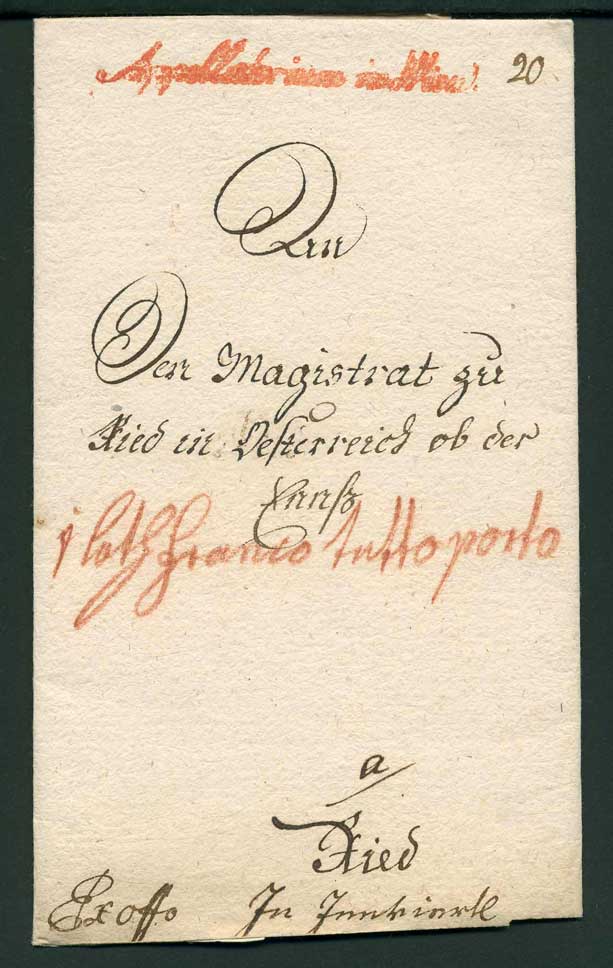 Appellatorium in Wien. 20
An
Den Magistrat zu
Ried in Oesterreich ob der
Ennß
1 loth franco tutto porto
a
Ried
Ex offo In Innviertl